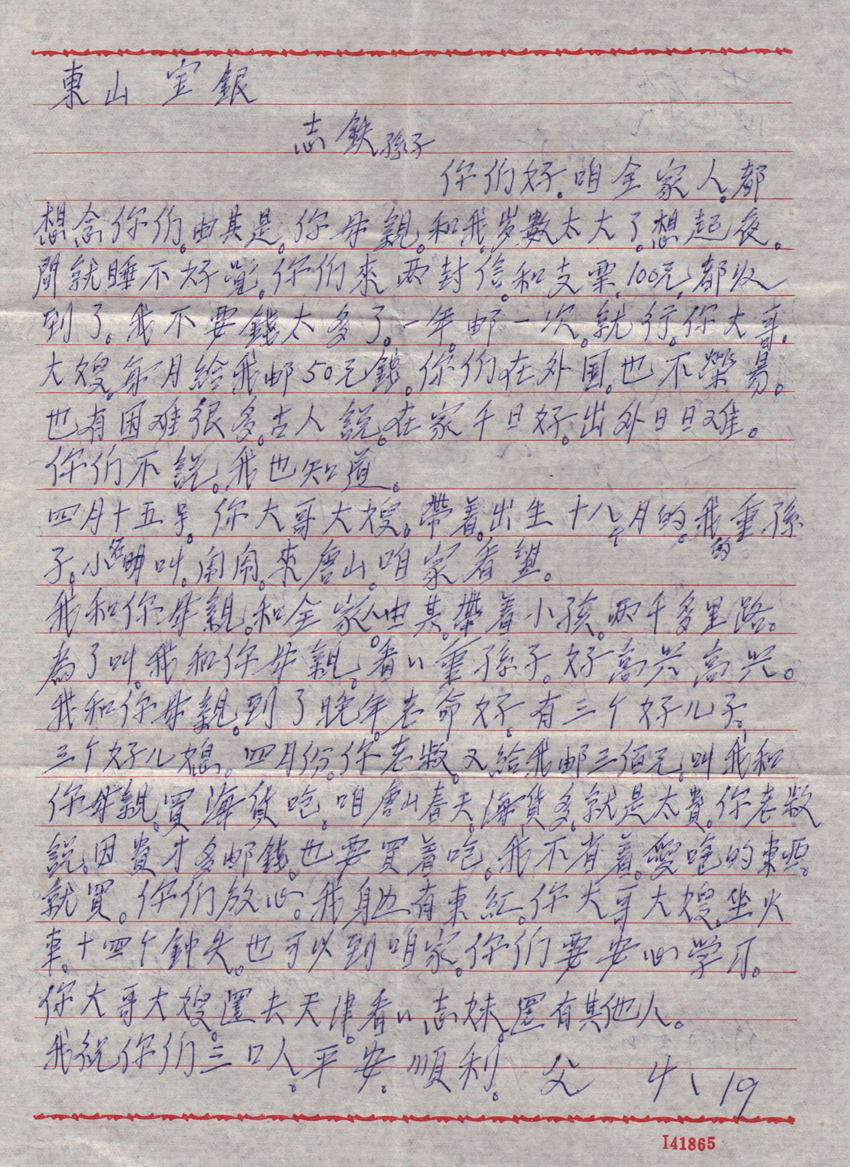 東山 宝銀
志鉄孫子
你们好。咱全家人。都
想念你们。由其是。你母親。和我。岁數太大了。想起夜。
間就睡不好覚。你们來两封信。和支票。100元。都收
到了。我不要錢太多了。一年。邮一次。就行。你大哥。
大嫂。每月給我邮50元錢。你们在外国。也不荣易。
也有困难很多。古人説。在家千日好。出外日日难。
你们不説。我也知道。
四月十五号。你大哥大嫂。帶着。出生十八个月的。我的重孫
子。小名明叫。闹闹。來唐山。咱家看望。
我和你母親。和全家人。由其。帶着小孩。两千多里路。
為了叫。我和你母親。看ㄑ重孫子。好高兴高兴。
我和你母親。到了晚年。老命好。有三个好儿子。
三个好儿媳。四月份。你老叔。又給我邮三佰元。叫我和
你母親。買海貨吃。咱唐山春天。海貨多。就是太貴。你老叔
説。因貴才多邮錢。也要買着吃。我不省着。愛吃的東西。
就買。你们放心。我身边有東紅。你大哥大嫂。坐火
車。十四个鈡头。也可以到咱家。你们要安心学习。
你大哥大嫂還去天津。看ㄑ志妹。還有其他人。
我祝你们三口人。平安。順利。 父 4、19
I41865